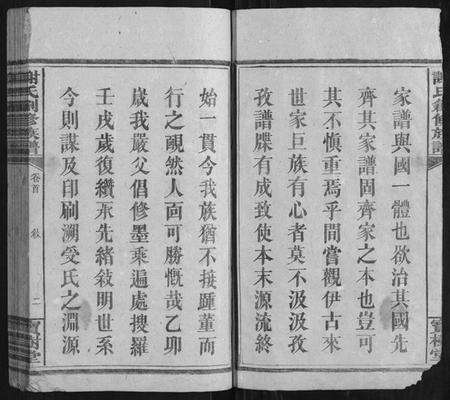 家譜與國一體也欲治其國先
齊其家譜固齊家之本也豈可
其不慎重焉乎間嘗觀伊古來
世家巨族有心者莫不汲汲孜
孜譜牒有成致使本末源流終
始一貫今我族猶不接踵董而
行之覥然人面可勝慨哉乙卯
歲我嚴父倡修墨乘遍處搜羅
壬戌歲復纘承先緒敍明世系
今則謀及印刷溯受氏之淵源
謝氏創修族譜
卷首
敘
二
寶樹堂